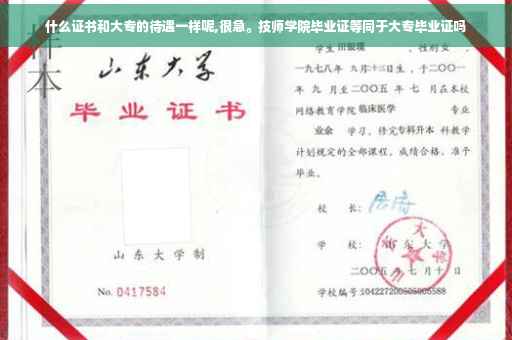 什么证书和大专的待遇一样呢,很急。技师学院毕业证等同于大专毕业证吗
样本
山东大学
毕业证书
山东大学制
No. 0417584
学生
性别女，
一九七八年九月十三日生，于二〇〇一
年九月至二〇〇五年七月在本校
网络教育学院临床医学专业
业余学习，修完专科升本科教学
计划规定的全部课程，成绩合格，准予
毕业。
校长：
学校：山东大学
二〇〇五年七月十日
学校编号：104227200505005588